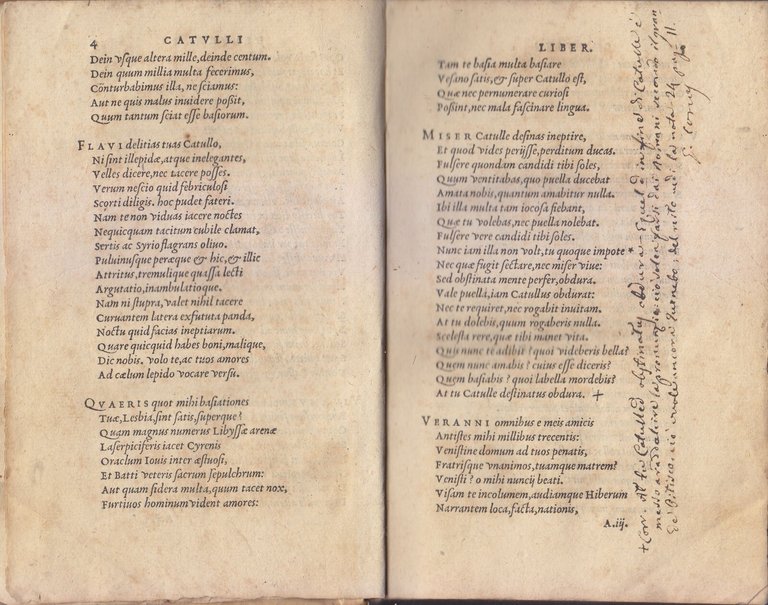 4 CATVLLI
Dein vſque altera mille, deinde centum.
Dein quum millia multa fecerimus,
Conturbabimus illa, ne ſciamus:
Aut ne quis malus inuidere poſsit,
Quum tantum ſciat eſſe baſiorum.
FLAVI delitias tuas Catullo,
Ni ſint illepidæ, atque inelegantes,
Velles dicere, nec tacere poſſes.
Verum neſcio quid febriculoſi
Scorti diligis. hoc pudet fateri.
Nam te non viduas iacere noctes
Nequicquam tacitum cubile clamat,
Sertis ac Syrio flagrans oliuo.
Puluinuſque peræque & hic, & illic
Attritus, tremulique quaſſa lecti
Argutatio, inambulatioque.
Nam ni ſtupra, valet nihil tacere
Curuantem latera exfututa panda,
Noctu quid facias ineptiarum.
Quare quicquid habes boni, malique,
Dic nobis. volo te, ac tuos amores
Ad cælum lepido vocare verſu.
QVAERIS quot mihi baſiationes
Tuæ, Lesbia, ſint ſatis, ſuperque?
Quam magnus numerus Libyſſæ arenæ
Laſerpiciferis iacet Cyrenis
Oraclum Iouis inter æſtuoſi,
Et Batti veteris ſacrum ſepulchrum:
Aut quam ſidera multa, quum tacet nox,
Furtiuos hominum vident amores:
LIBER.
Tam te baſia multa baſiare
Veſano ſatis, & ſuper Catullo eſt,
Quæ nec pernumerare curioſi
Poſsint, nec mala faſcinare lingua.
MISER Catulle deſinas ineptire,
Et quod vides perijſſe, perditum ducas.
Fulſere quondam candidi tibi ſoles,
Quum ventitabas, quo puella ducebat
Amata nobis, quantum amabitur nulla.
Ibi illa multa tam iocoſa fiebant,
Quæ tu volebas, nec puella nolebat.
Fulſere vere candidi tibi ſoles.
Nunc iam illa non volt, tu quoque impote *
Nec quæ fugit ſectare, nec miſer viue:
Sed obſtinata mente perfer, obdura.
Vale puella, iam Catullus obdurat:
Nec te requiret, nec rogabit inuitam.
At tu dolebis, quum rogaberis nulla.
Sceleſta rere, quæ tibi manet vita.
Quis nunc te adibit? quoi videberis bella?
Quem nunc amabis? cuius eſſe diceris?
Quem baſiabis? quoi labella mordebis?
At tu Catulle deſtinatus obdura. +
VERANNI omnibus e meis amicis
Antiſtes mihi millibus trecentis:
Veniſtine domum ad tuos penatis,
Fratriſque vnanimos, tuamque matrem?
Veniſti? o mihi nuncij beati.
Viſam te incolumem, audiamque Hiberum
Narrantem loca, facta, nationis,
A.iij.
+ Corr. At tu Catulle obſtinatus obdura